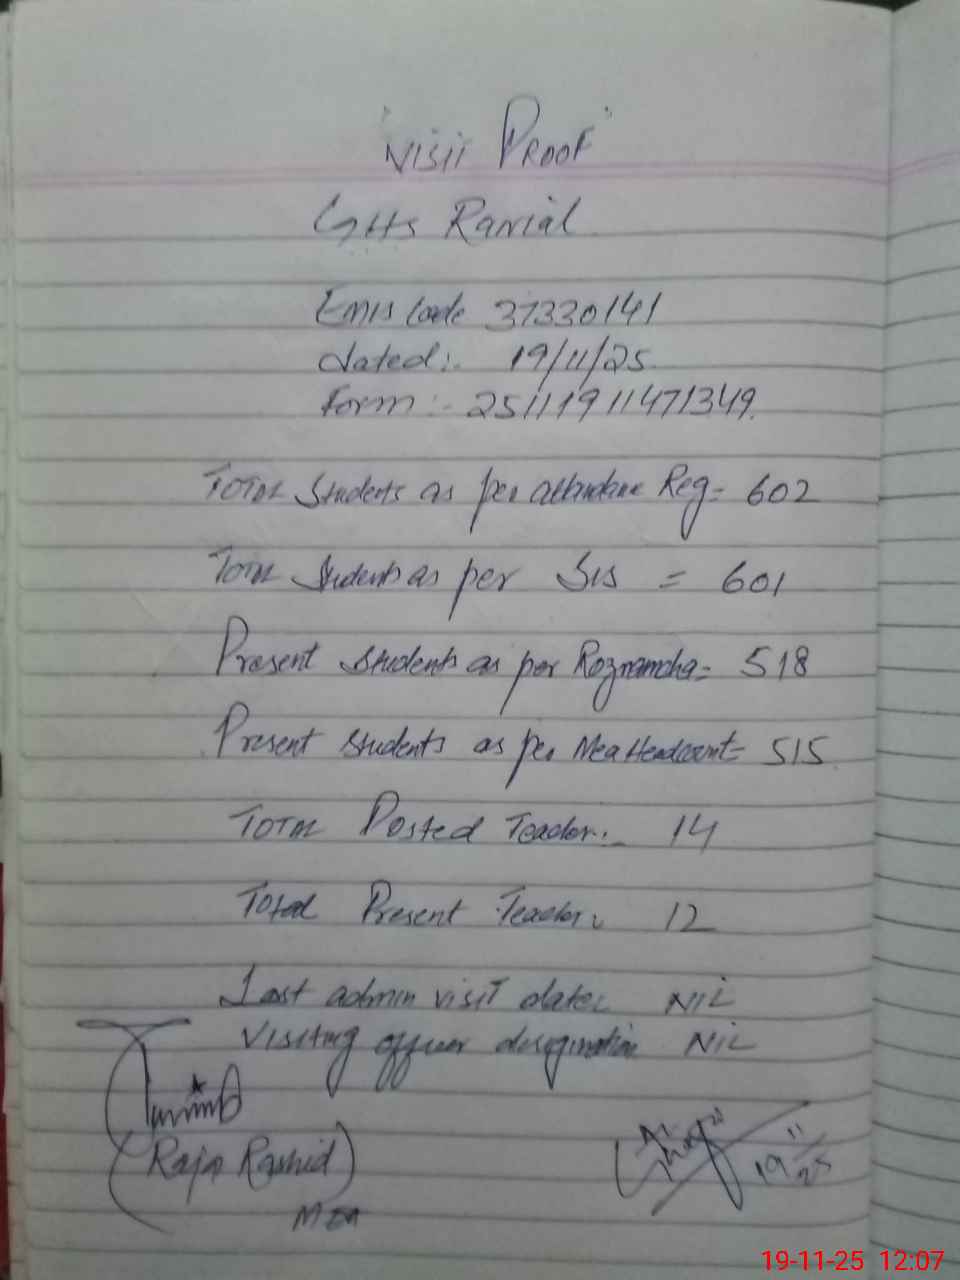 "VISIT PROOF"
GHS Ranial
EMIS Code 37330141
dated:- 19/11/25.
Form:- 25111911471349.
TOTAL Students as per attendance Reg= 602
Total Students as per SIS = 601
Present Students as per Roznamcha= 518
Present Students as per Mea Headcount= 515
TOTAL Posted Teacher:- 14
Total Present Teacher: 12
Last admin visit date: NIL
Visiting officer designation NIL
(Raja Rashid)
MEA
19/11/25
19-11-25 12:07